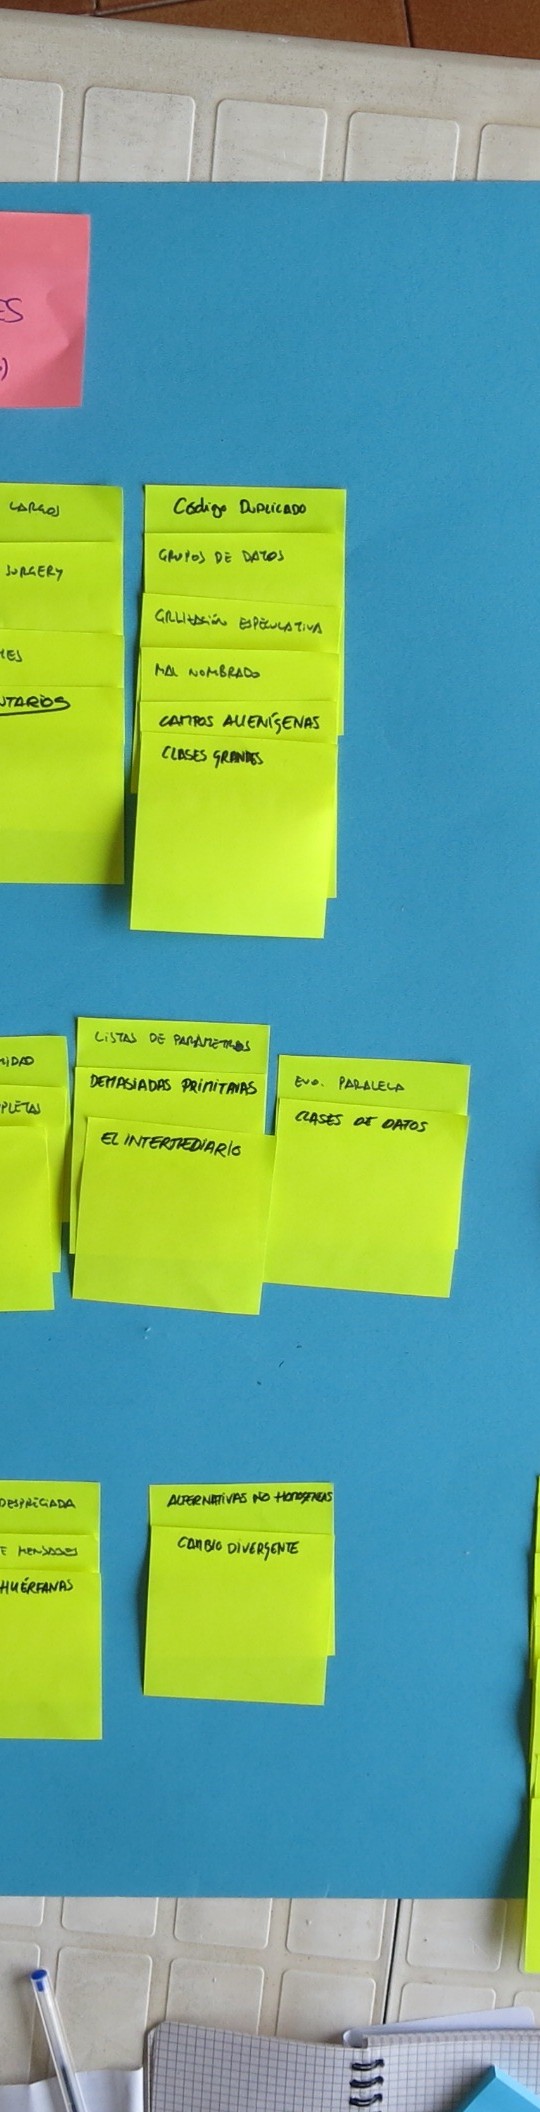 ES
)
LARGOS
SURGERY
MES
NTARIOS
Código DUPLICADO
GRUPOS DE DATOS
GRLIZACIÓN ESPECULATIVA
MAL NOMBRADO
CAMPOS ALIENÍGENAS
CLASES GRANDES
MIDAD
PLETAS
LISTAS DE PARAMETROS
DEMASIADAS PRIMITIVAS
EL INTERMEDIARIO
EVO. PARALELA
CLASES DE DATOS
DESPRECIADA
E MENSAJES
HUÉRFANAS
ALTERNATIVAS NO HOMOGENEAS
CAMBIO DIVERGENTE